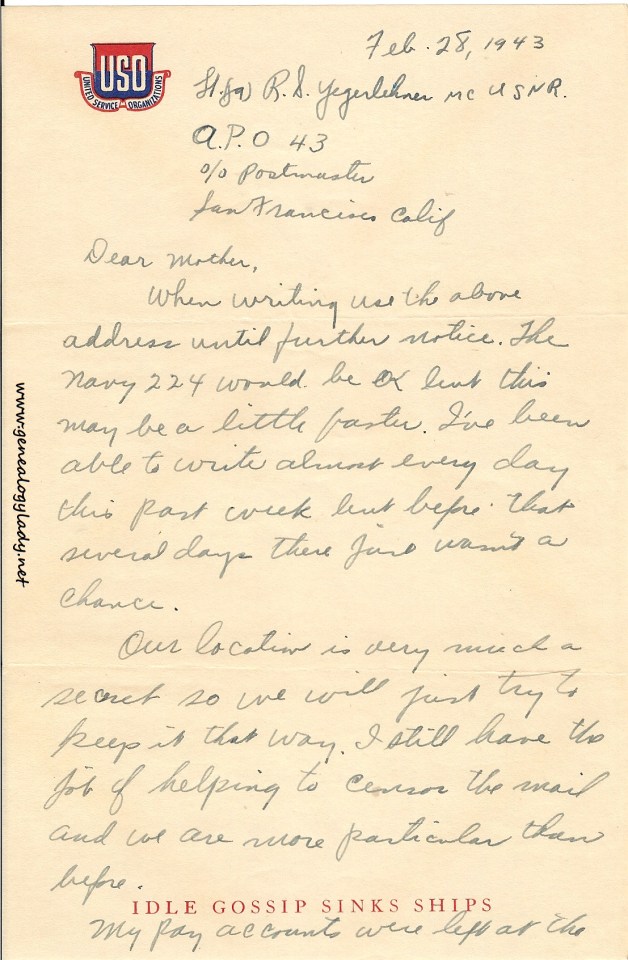 Feb. 28, 1943
USO
UNITED SERVICE ORGANIZATIONS
Lt. (jg) R. S. Yegerlehner MC USNR.
A.P.O 43
c/o Postmaster
San Francisco Calif
Dear Mother,
When writing use the above
address until further notice. The
Navy 224 would be OK but this
may be a little faster. I've been
able to write almost every day
this past week but before that
several days there just wasn't a
chance.
Our location is very much a
secret so we will just try to
keep it that way. I still have the
job of helping to censor the mail
and we are more particular than
before.
IDLE GOSSIP SINKS SHIPS
My pay accounts were left at the
www.genealogylady.net